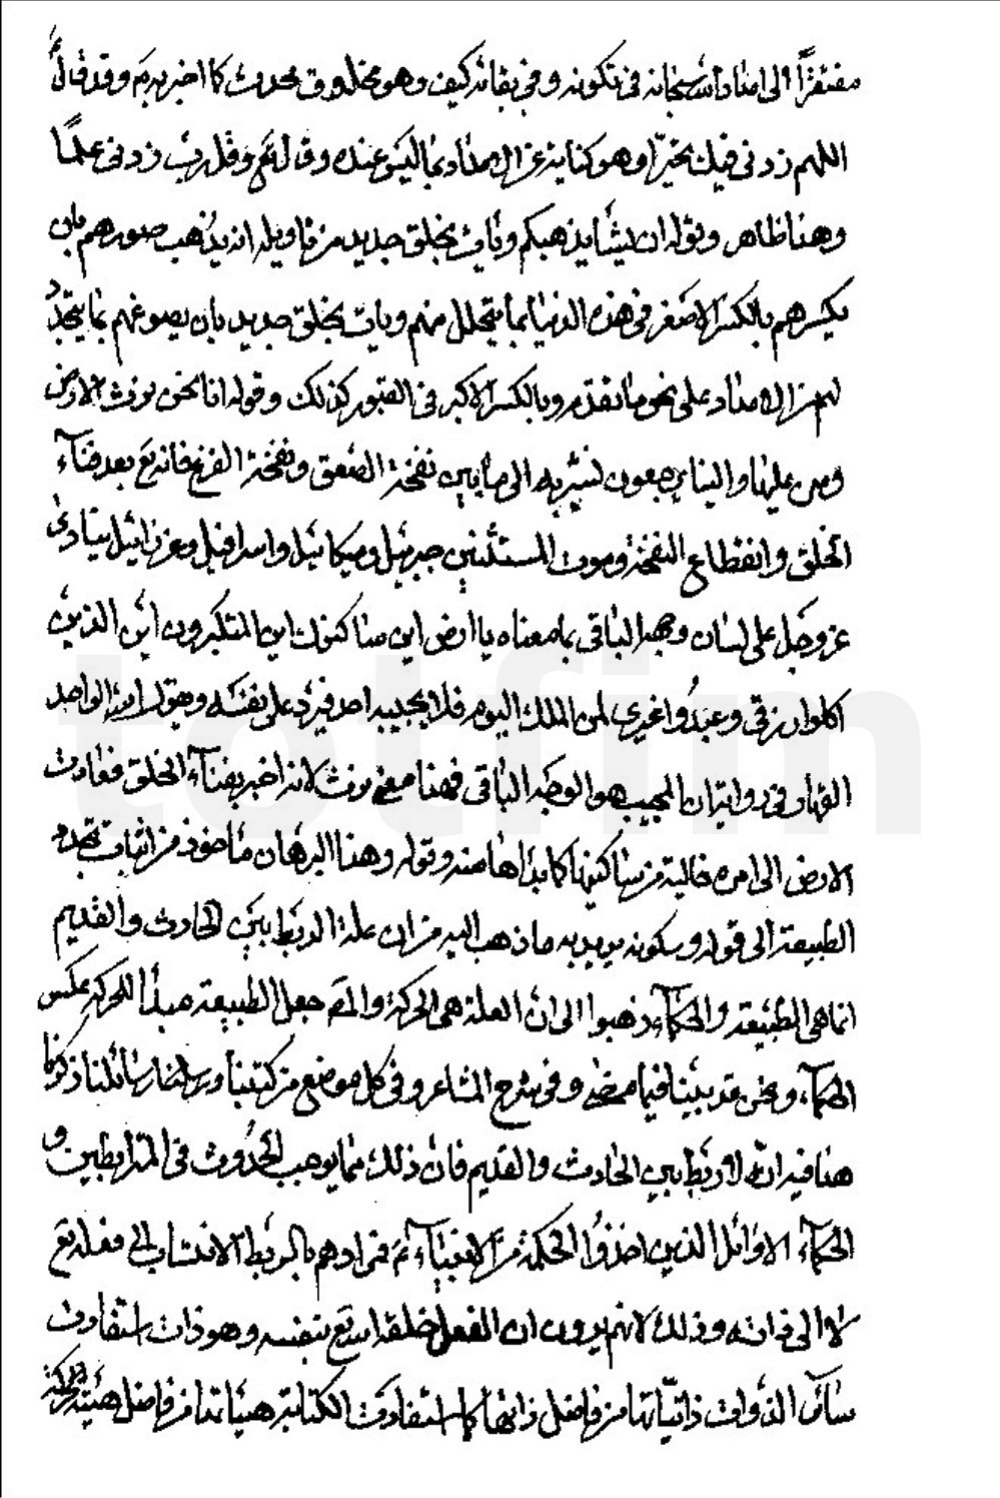 مفتقرًا الى امداد الله سبحانه فى تكونه و فى بقائه كيف و هو مخلوق محدث كما اخبر به و قد قال
اللهم زدنى فيك تحيرا و هو كناية عن الامداد بما ليس عنده و قال تع و قل رب زدنى علمًا
و هذا ظاهر و قوله ان يشأ يذهبكم و يأت بخلق جديد من تأويله انه يذهب صورهم بان
يكسرهم بالكسر الاصغر فى هذه الدنيا بما يتحلل منهم و يأت بخلق جديد بان يصوغهم بما يتجدد
لهم من الامداد على نحو ما تقدم و بالكسر الاكبر فى القبور كذلك و قوله انا نحن نرث الارض
و من عليها و الينا يرجعون يشير به الى ما بين نفخة الصعق و نفخة الفزع فانه تع بعد فناء
الخلق و انقطاع النفخة و موت المستثنين جبرئيل و ميكائيل و اسرافيل و عزرائيل ينادى
عز و جل على لسان وجهه الباقى بما معناه يا ارض اين ساكنوك اين المتكبرون اين الذين
اكلوا رزقى و عبدوا غيرى لمن الملك اليوم فلا يجيبه احد فيرد على نفسه و يقول لله الواحد
القهار و فى رواية ان المجيب هو الوجه الباقى فهذا معنى نرث لانه اخبر بفناء الخلق فعادت
الارض الى امره خالية من ساكنيها كما بدأها منه و قوله و هذا البرهان مأخوذ من اثبات تجدد
الطبيعة الى قوله و سكونه يريد به ما ذهب اليه من ان علة الربط بين الحادث و القديم
انما هى الطبيعة و الحكماء ذهبوا الى ان العلة هى الحركة و المص جعل الطبيعة مبدأ للحركة عكس
الحكماء و نحن قد بينا فيما مضى و فى شرح المشاعر و فى كل موضع من كتبنا و رسائلنا ذكرنا
هذا فيه انه لا ربط بين الحادث و القديم فان ذلك مما يوجب الحدوث فى المترابطين و
الحكماء الاوائل الذين اخذوا الحكمة من الانبياء ع فمرادهم بالربط الانتساب الى فعله تع
لا الى ذاته و ذلك لانهم يرون ان الفعل خلقه الله تع بنفسه و هو ذات استفادت
سائر الذوات ذاتياتها من فاضل ذاتها كما استفادت الكتابة هيئاتها من فاضل هيئة الحركة